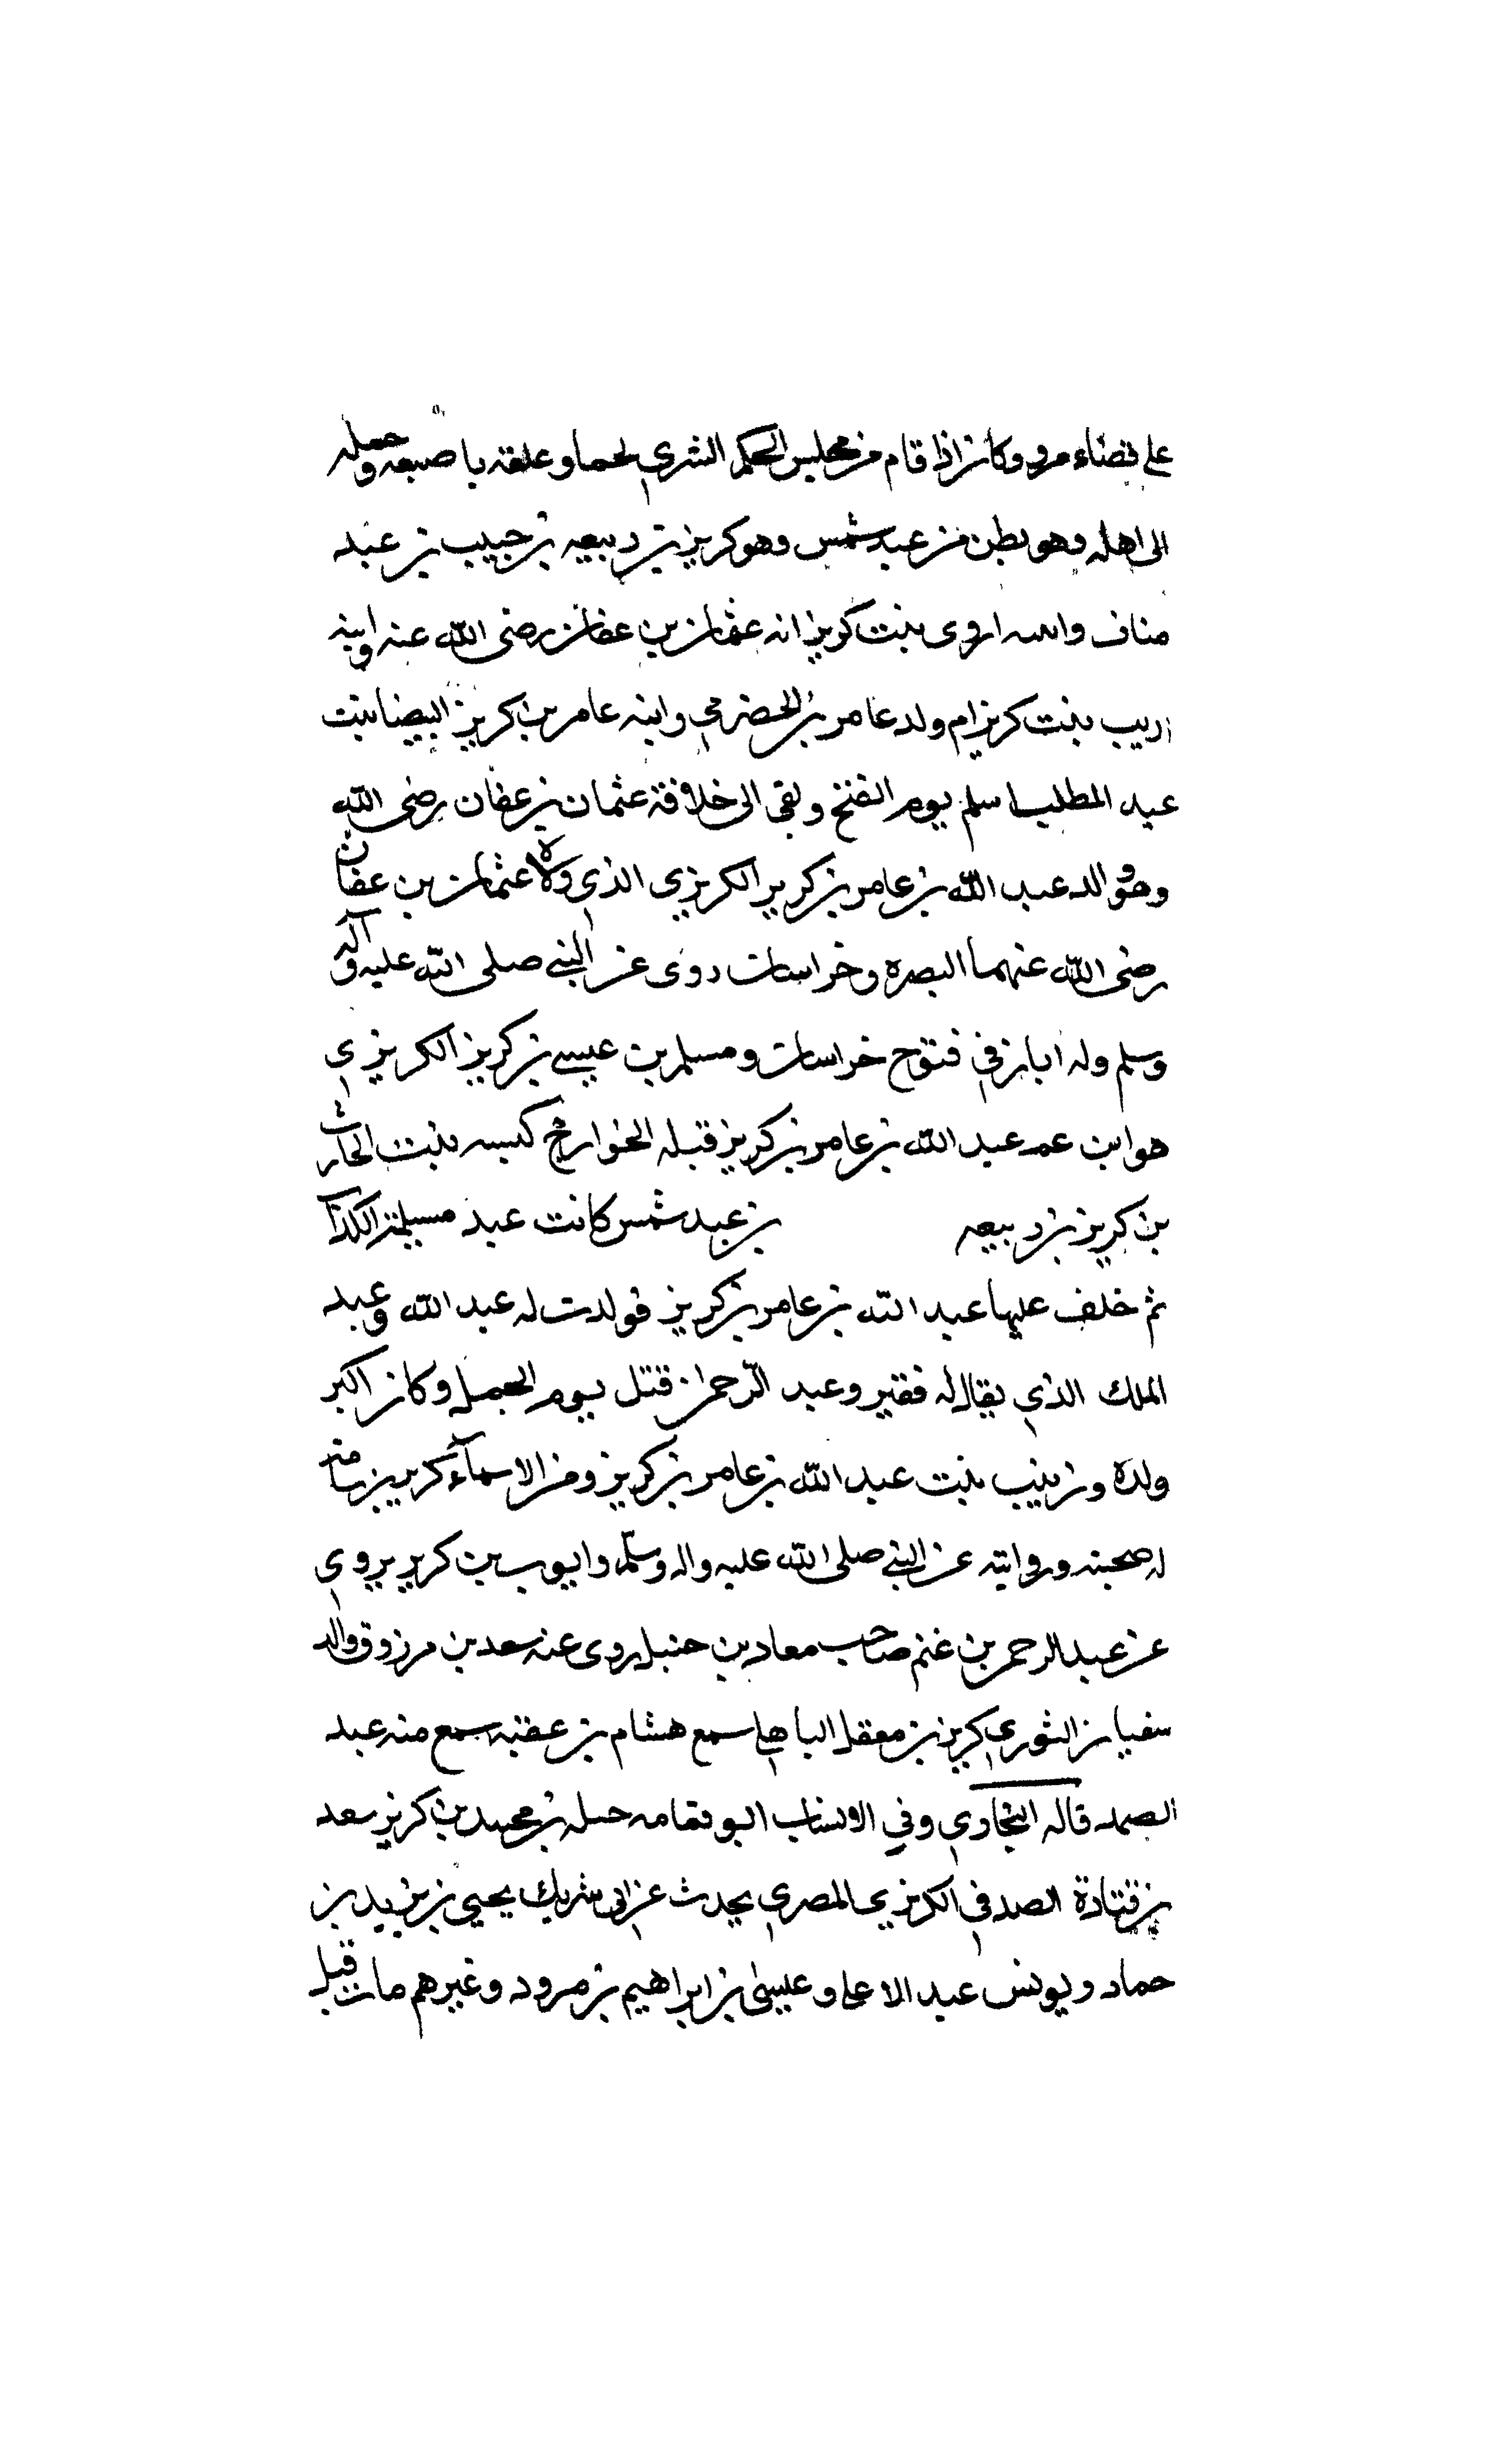 على قضاء مرو وكان اذا قام من مجلس الحكم اشترى لحما وعلقه باصبعه وحمله
الى اهله وهو بطن من عبد شمس وهو كريز بن ربيعه بن حبيب بن عبد
مناف وابنته اروى بنت كريز ام عثمان بن عفان رضى الله عنه وابنه
اريب بنت كريز ام ولد عامر بن الحضرمي وابنه عامر بن كريز البيضا بنت
عبد المطلب اسلم يوم الفتح وبقى الى خلافة عثمان بن عفان رضى الله
وهو والد عبد الله بن عامر بن كرير الكريزي الذي ولاه عثمان بن عفان
رضى الله عنهما البصره وخراسان روى عن النبي صلى الله عليه وآله
وسلم وله ابار في فتوح خراسان ومسلم بن عيسى بن كريز الكريزي
هو ابن عم عبد الله بن عامر بن كريز قتله الخوارج كيسه بنت الحارث
بن كريز بن ربيعه بن عبد شمس كانت عند مسيلمة الكذا
ثم خلف عليها عبد الله بن عامر بن كريز فولدت له عبد الله وعبد
الملك الذي يقال له فقير وعبد الرحمن قتل يوم الجمل وكان اكبر
ولده وزينب بنت عبد الله بن عامر بن كريز ومن الاسمآء كريز بن سامة
له صحبته وروايته عن النبي صلى الله عليه واله وسلم وايوب بن كرير يروي
عن عبد الرحمن بن غنم صاحب معاد بن حنبل روى عنه سعد بن مرزوق والد
سفيان الثوري كريز بن معقل الباهلي سمع هشام بن عقبه سمع منه عبد
الصمد قاله البخاري وفي الانساب ابو ثمامه جبله بن محمد بن كريز سعد
بن قتادة الصدفي الكريزي المصري يحدث عن ابي شريك يحيى بن يزيد بن
حماد ويونس عبد الاعلى وعيسى بن ابراهيم بن مرود وغيرهم مات قبل